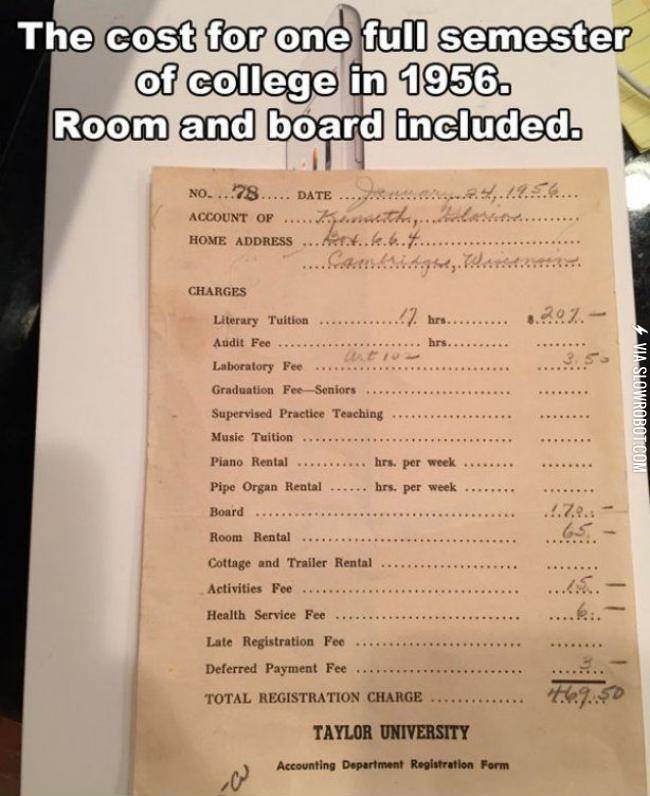 The cost for one full semester
of college in 1956.
Room and board included.
NO. ...78..... DATE ....January 24, 1956...
ACCOUNT OF .....Kenneth,
HOME ADDRESS ...Box 664
Cambridge, Wisconsin
CHARGES
Literary Tuition ............17 hrs.......... $.207.–
Audit Fee ...................... hrs.......... ........
Laboratory Fee ....Art 102.... 3.50
Graduation Fee—Seniors ................ ........
Supervised Practice Teaching .............. ........
Music Tuition ............................ ........
Piano Rental .......... hrs. per week ........ ........
Pipe Organ Rental ...... hrs. per week ........ ........
Board .............................. 170.–
Room Rental .......................... 65.–
Cottage and Trailer Rental ................ ........
Activities Fee .......................... 15.–
Health Service Fee ...................... 6.–
Late Registration Fee .................... ........
Deferred Payment Fee .................... 3.–
TOTAL REGISTRATION CHARGE .............. 469.50
TAYLOR UNIVERSITY
Accounting Department Registration Form
VIA SLOWROBOT.COM